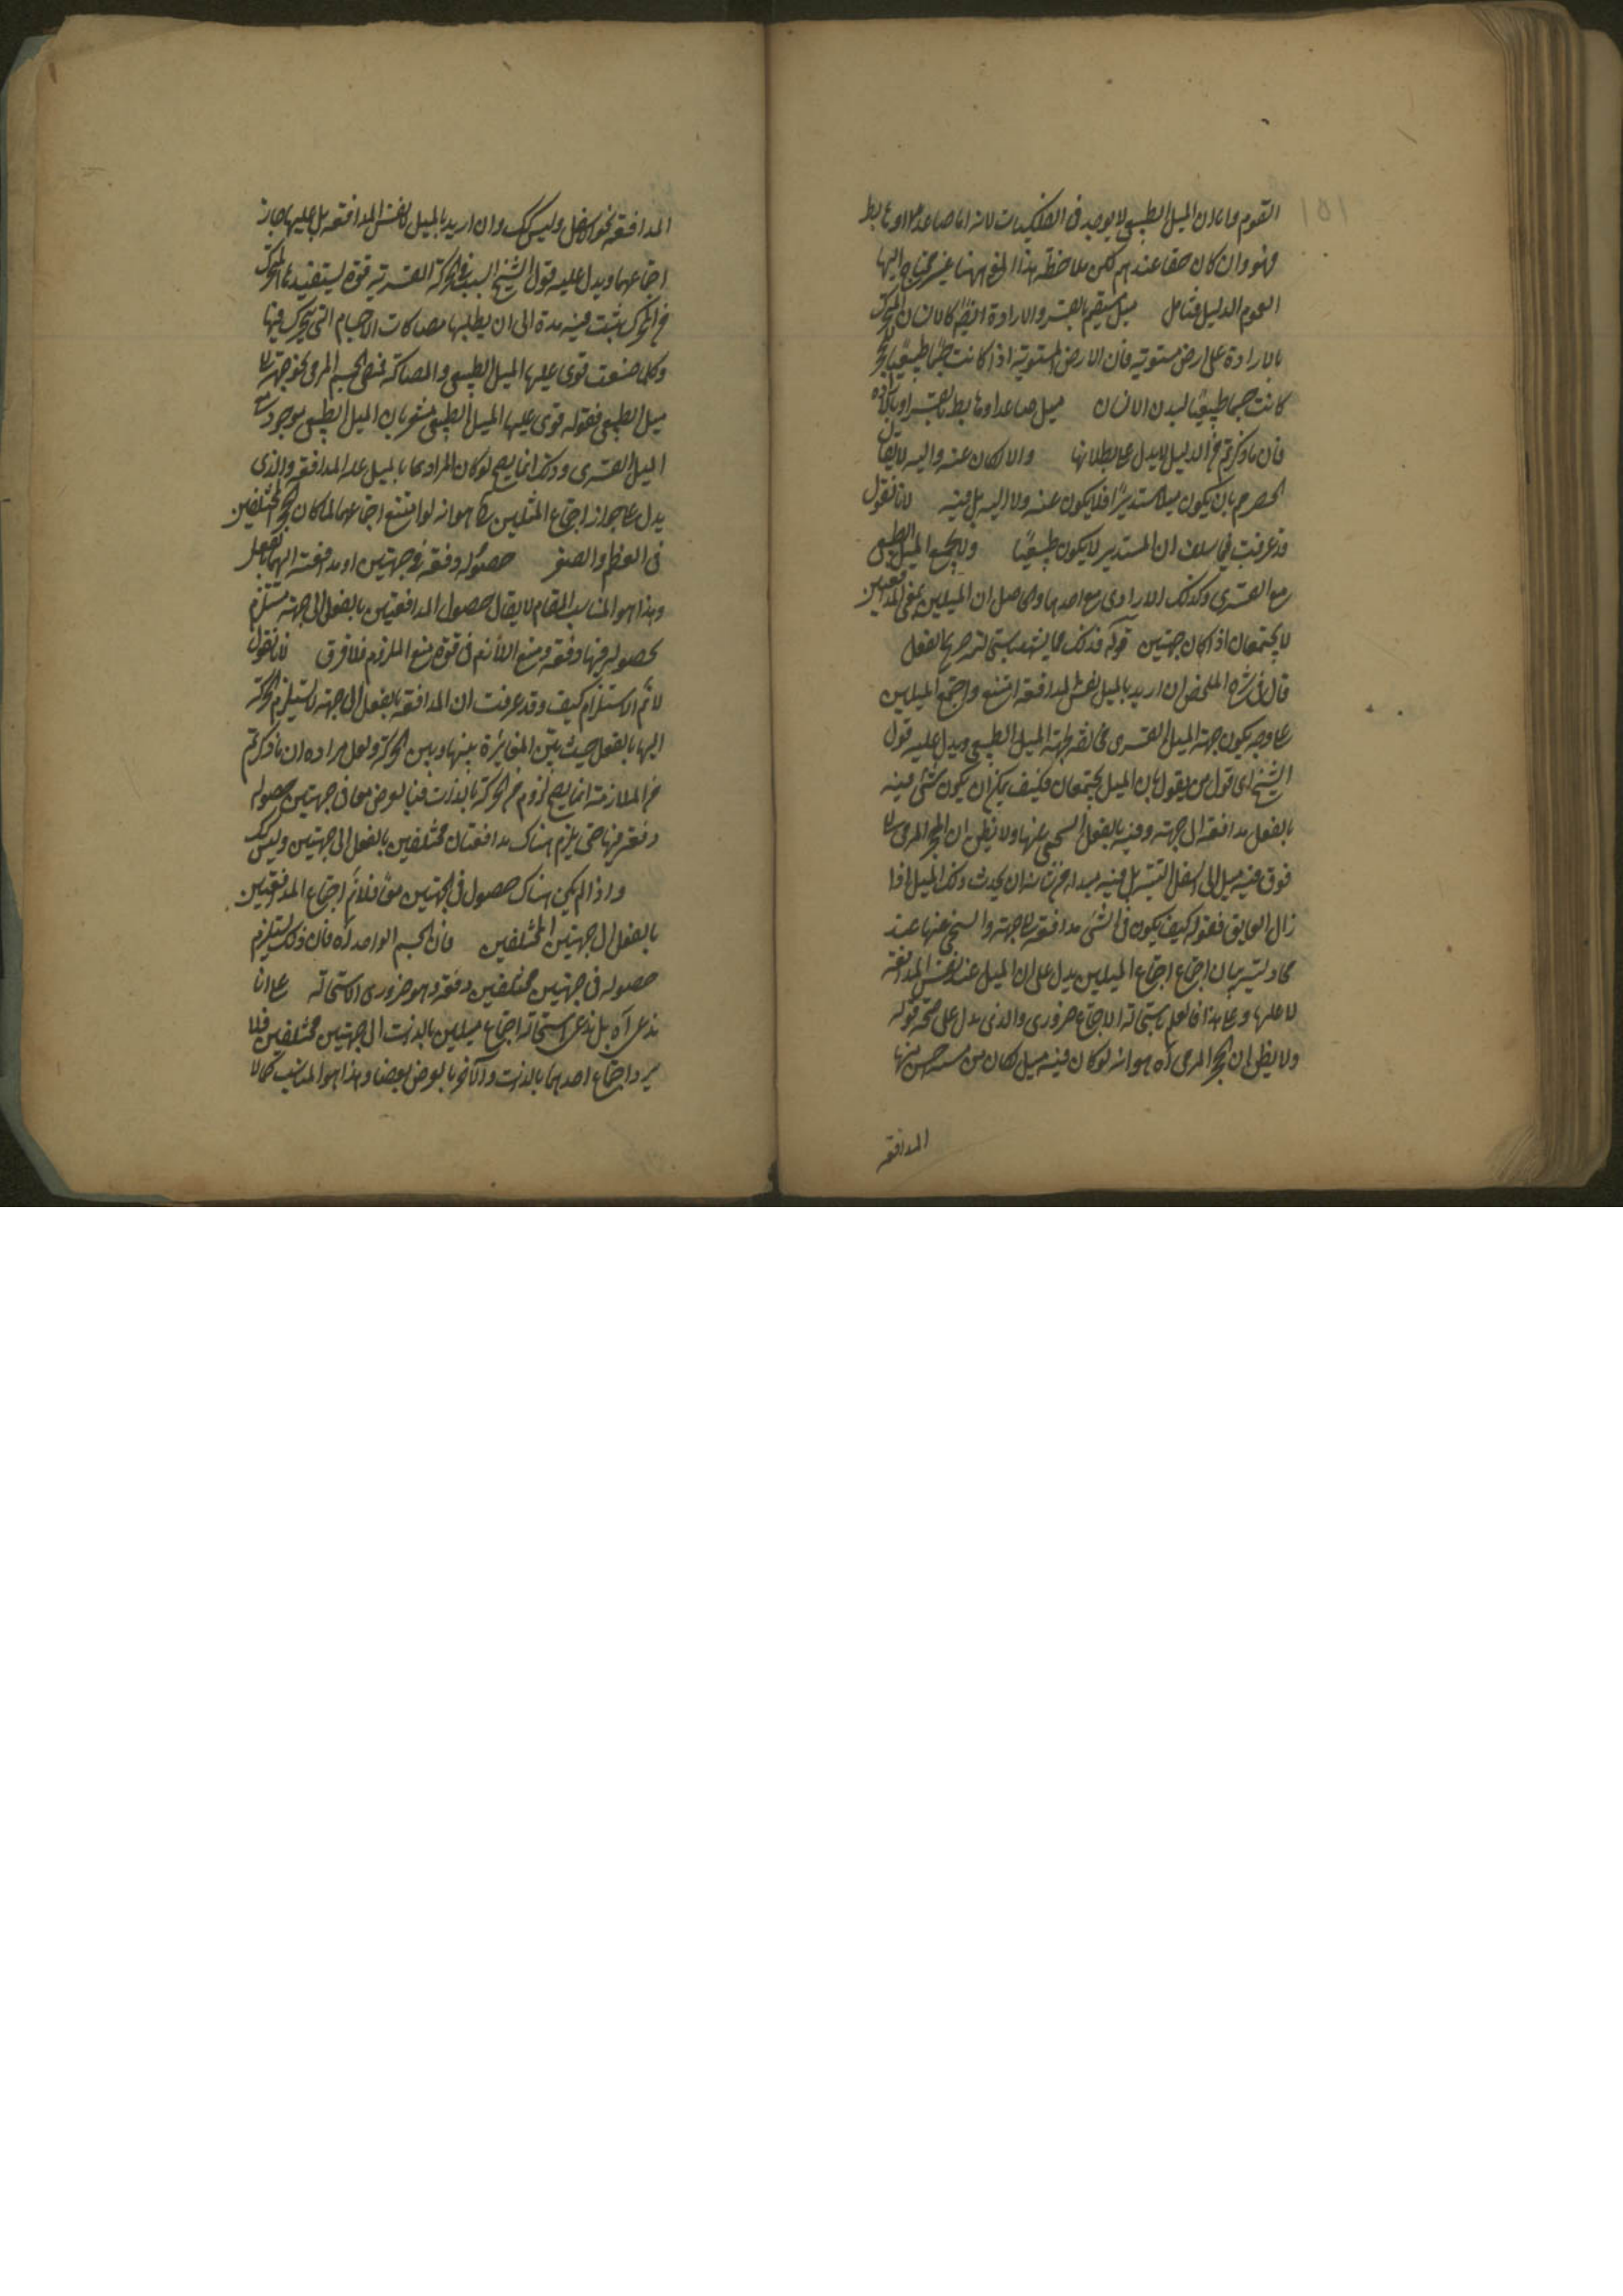 ١٥١
القوم واما ان الميل الطبيعي لا يوجد في الفلكيات لانه اما صاعد او هابط
فهو وان كان حقا عندهم لكن ملاحظة هذا ههنا غير محتاج اليها
لعموم الدليل فتأمل ميل مستقيم بالقسر والارادة ايضا كالانسان المتحرك
بالارادة على ارض مستوية فان الارض المستوية اذا كانت طبيعيا
كانت جسما طبيعيا لبدن الانسان ميل صاعدا وهابط بالقسر او بالارادة
فان ما ذكرتم من الدليل لا يدل على بطلانها والا لكان عنه واليه لا يقال
الحصر بان يكون ميلا مستديرا فلا يكون عنه ولا اليه بل فيه لانا نقول
قد عرفت فيما سلف ان المستدير لا يكون طبيعيا ولا يجتمع الميل الطبيعي
مع القسري وكذلك الارادي مع احدهما والحاصل ان الميلين بمعنى المدافعتين
لا يجتمعان اذا كان جهتين قوله فذلك مما يشهد بالفعل
قال في شرح الملخص ان اريد بالميل نفس المدافعة امتنع اجتماع الميلين
على وجه يكون جهة الميل القسري مخالفة لجهة الميل الطبيعي ويدل عليه قول
الشيخ اي قول من يقول بان الميل يجتمعان فكيف يمكن ان يكون شئ فيه
بالفعل مدافعة الى جهة وفيه بالفعل التنحي عنها ولا نظن ان الحجر المرمي الى
فوق فيه ميل الى اسفل البتة بل فيه مبدأ من شانه ان يحدث ذلك الميل اذا
زال العايق فقوله كيف يكون في الشئ مدافعة الى جهة والتنحي عنها عند
محاولته بيان امتناع اجتماع الميلين يدل على ان الميل عنده نفس المدافعة
لا علتها وعلى هذا فالعلم باستحالة الاجتماع ضروري والذي يدل على صحة قوله
ولا يظن ان الحجر المرمي آه هو انه لو كان فيه ميل لكان من مسه حس منها
المدافعة
المدافعة نحو الاسفل وليس كك وان اريد بالميل لا نفس المدافعة بل علتها جاز
اجتماعهما ويدل عليه قول الشيخ السبب في الحركة القسرية قوة يستفيدها المتحرك
من المحرك يثبت فيه مدة الى ان يبطلها مصاكات الاجسام التي يتحرك فيها
وكلما ضعفت قوي عليها الميل الطبيعي والمصاكة فيمضي الجسم المرمي نحو جهة
ميل الطبيعي فقوله قوي عليها الميل الطبيعي مشعر بان الميل الطبيعي موجود مع
الميل القسري وذلك انما يصح لو كان المراد بالميل علة المدافعة والذي
يدل على جواز اجتماع المثلين هو انه لو امتنع اجتماعهما لما كان المختلفين
في العظم والصغر حصوله دفعة في جهتين او مدافعته اليهما بالفعل
وهذا هو المناسب للمقام لا يقال حصول المدافعتين بالفعل الى جهة مستلزم
لحصوله فيها دفعة ومنع اللازم في قوة منع الملزوم فلا فرق لانا نقول
لا نم الاستلزام كيف وقد عرفت ان المدافعة بالفعل الى جهة لا يستلزم الحركة
اليها بالفعل حيث بين المغايرة بينها وبين الحركة ولعل مراده ان ما ذكرتم
من الملازمة انما يصح لزوم من الحركة بالذات فيما بالعرض معا في جهتين حصوله
دفعة فيها حتى يلزم هناك مدافعتان مختلفتين بالفعل الى جهتين وليس كك
واذا لم يكن هناك حصول في الجهتين معا فلا نم اجتماع المدافعتين
بالفعل الى جهتين المختلفتين فان الجسم الواحد آه فان ذلك يستلزم
حصوله في جهتين مختلفتين دفعة وهو ضروري الاستحالة على انا
ندعي آه بل ندعي استحالة اجتماع ميلين بالذات الى جهتين مختلفتين فلا
يرد اجتماع احدهما بالذات والآخر بالعرض نقضا وهذا هو المناسب كما لا